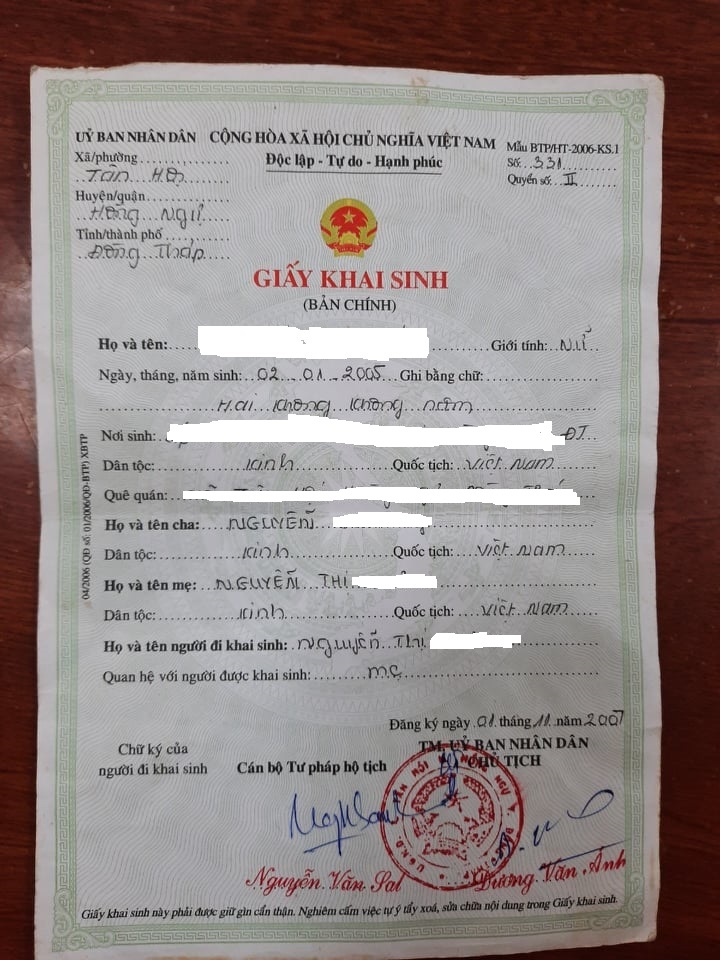 UỶ BAN NHÂN DÂN
CỘNG HÒA XÃ HỘI CHỦ NGHĨA VIỆT NAM
Mẫu BTP/HT-2006-KS.1
Xã/phường
Độc lập - Tự do - Hạnh phúc
Số: 331
Tân Hội
Quyển số: II
Huyện/quận
Hồng Ngự
Tỉnh/thành phố
Đồng Tháp
GIẤY KHAI SINH
(BẢN CHÍNH)
Họ và tên: Giới tính: Nữ
Ngày, tháng, năm sinh: 02 - 01 - 2005 Ghi bằng chữ:
Hai không không năm
Nơi sinh: ĐT
Dân tộc: Kinh Quốc tịch: Việt Nam
Quê quán:
Họ và tên cha: NGUYỄN
Dân tộc: Kinh Quốc tịch: Việt Nam
Họ và tên mẹ: NGUYỄN THỊ
Dân tộc: Kinh Quốc tịch: Việt Nam
Họ và tên người đi khai sinh: Nguyễn Thị
Quan hệ với người được khai sinh: mẹ
Đăng ký ngày 01 tháng 11 năm 2007
Chữ ký của
người đi khai sinh
Cán bộ Tư pháp hộ tịch
TM. UỶ BAN NHÂN DÂN
CHỦ TỊCH
Nguyễn Văn Sal
Dương Văn Ánh
Giấy khai sinh này phải được giữ gìn cẩn thận. Nghiêm cấm việc tự ý tẩy xoá, sửa chữa nội dung trong Giấy khai sinh.
04/2006 (QĐ số: 01/2006/QĐ-BTP) XBTP